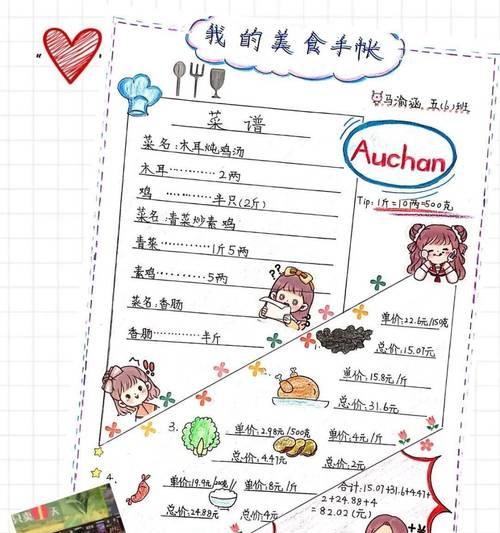 我的美食手帐
马渝涵 五(6)班
菜谱
菜名:木耳炖鸡汤
木耳………2两
鸡………半只(2斤)
菜名:青菜炒素鸡
青菜………1斤5两
素鸡………5两
菜名:香肠
香肠………半斤
Auchan
Tip:1斤=10两=500克
??
单价:22.6元/150克
总价:15.07元
单价:15.8元/斤
总价:31.6元
3.
单价:2.98元/500克
总价:4.47元
单价:4元/斤
总价:2元
4.
单价:19.9元/200克
总价:24.88元
单价:8元/斤
总价:4元
合计:15.07+31.6+4.47+
2+24.88+4
=82.02(元)
天